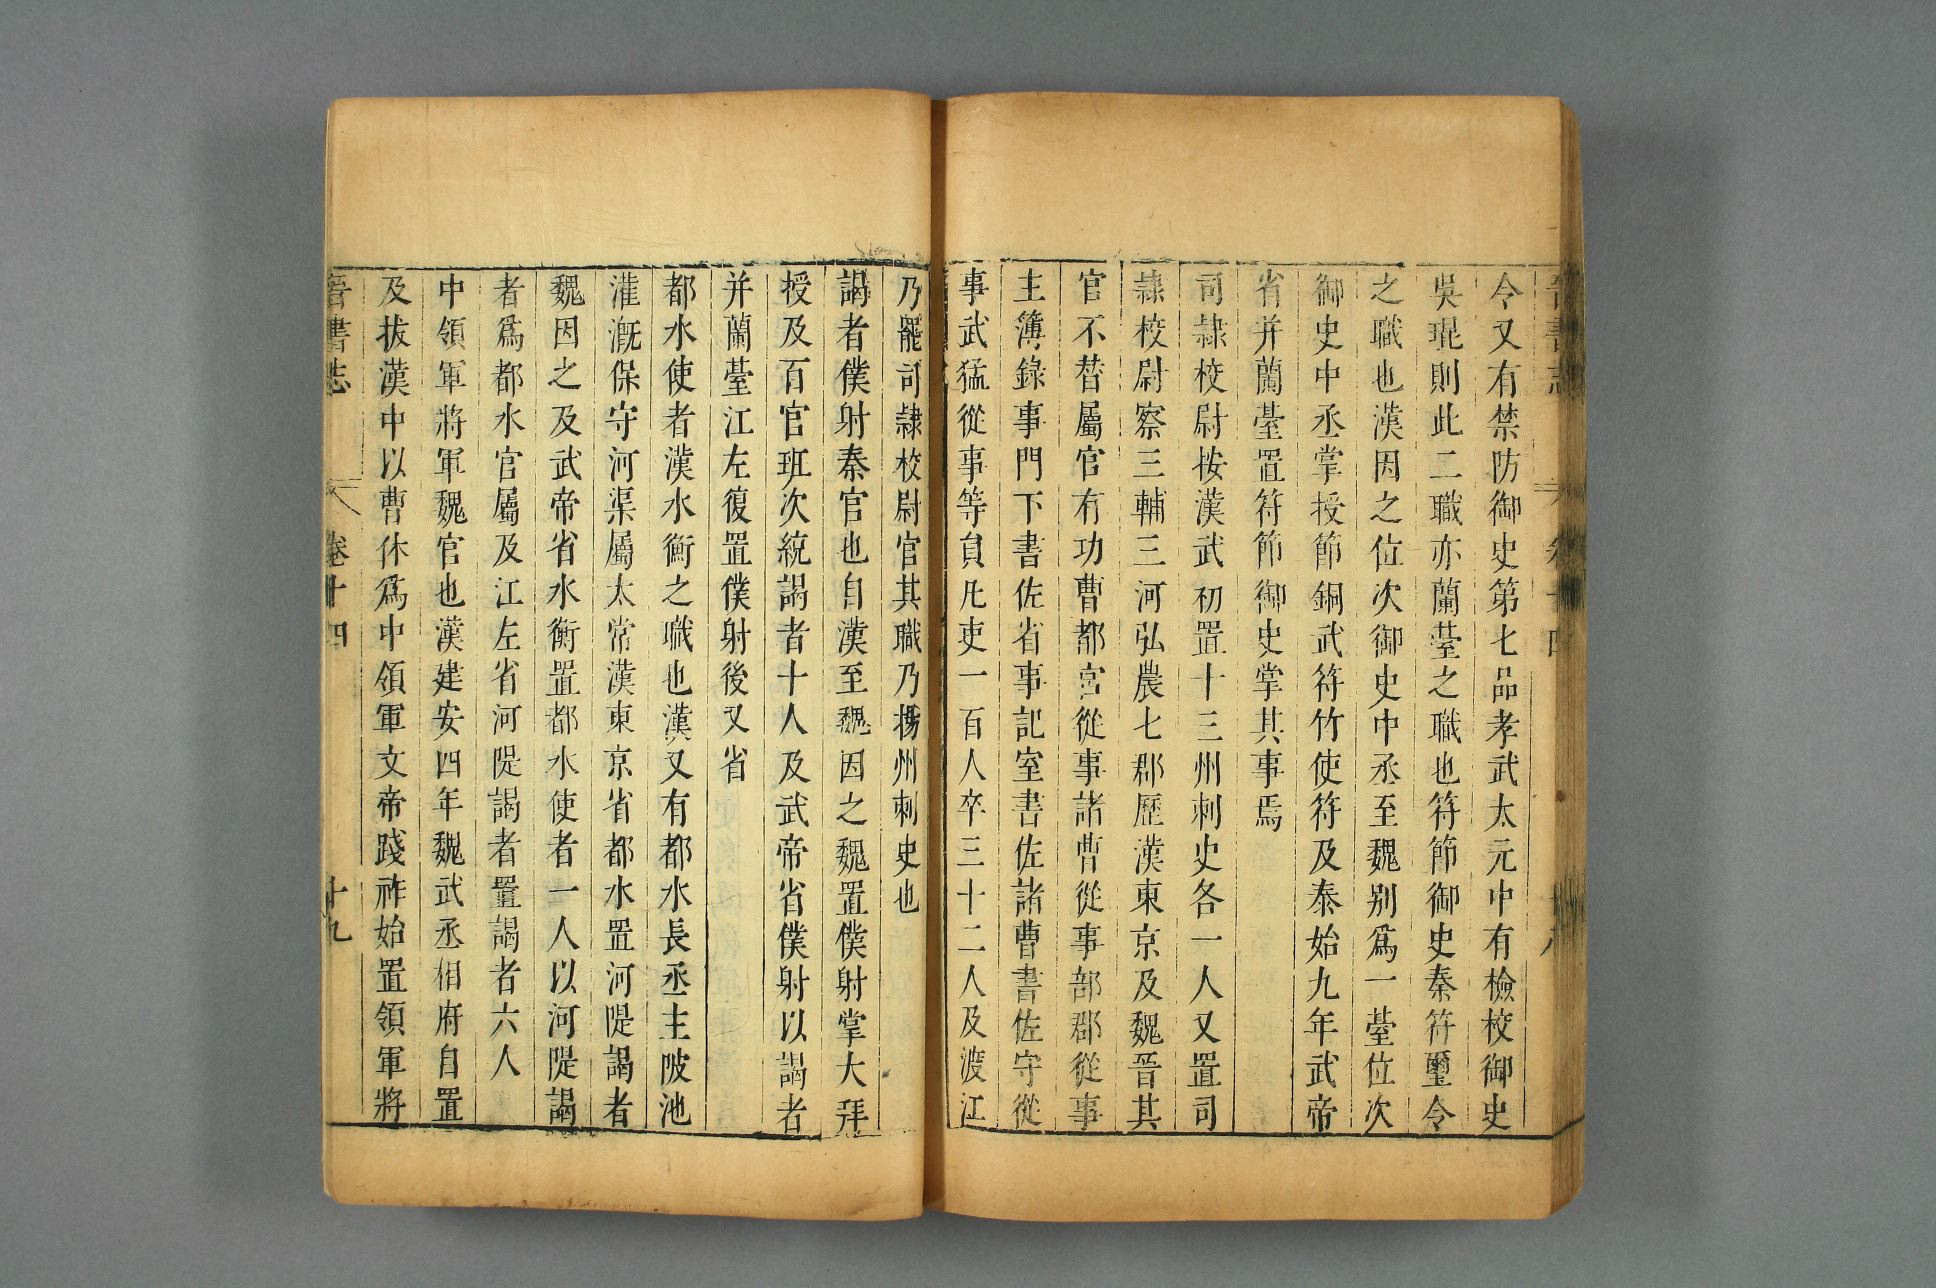 晉書志 卷十四
令又有禁防御史第七品孝武太元中有檢校御史
吳琨則此二職亦蘭臺之職也符節御史秦符璽令
之職也漢因之位次御史中丞至魏别爲一臺位次
御史中丞掌授節銅武符竹使符及泰始九年武帝
省并蘭臺置符節御史掌其事焉
司隷校尉按漢武初置十三州刺史各一人又置司
隷校尉察三輔三河弘農七郡歷漢東京及魏晉其
官不替屬官有功曹都官從事諸曹從事部郡從事
主簿錄事門下書佐省事記室書佐諸曹書佐守從
事武猛從事等貟凡吏一百人卒三十二人及渡江
乃罷司隷校尉官其職乃揚州刺史也
謁者僕射秦官也自漢至魏因之魏置僕射掌大拜
授及百官班次統謁者十人及武帝省僕射以謁者
并蘭臺江左復置僕射後又省
都水使者漢水衡之職也漢又有都水長丞主陂池
灌漑保守河渠屬太常漢東京省都水置河隄謁者
魏因之及武帝省水衡置都水使者一人以河隄謁
者爲都水官屬及江左省河隄謁者置謁者六人
中領軍將軍魏官也漢建安四年魏武丞相府自置
及拔漢中以曹休爲中領軍文帝踐祚始置領軍將
晉書志 卷十四 十九